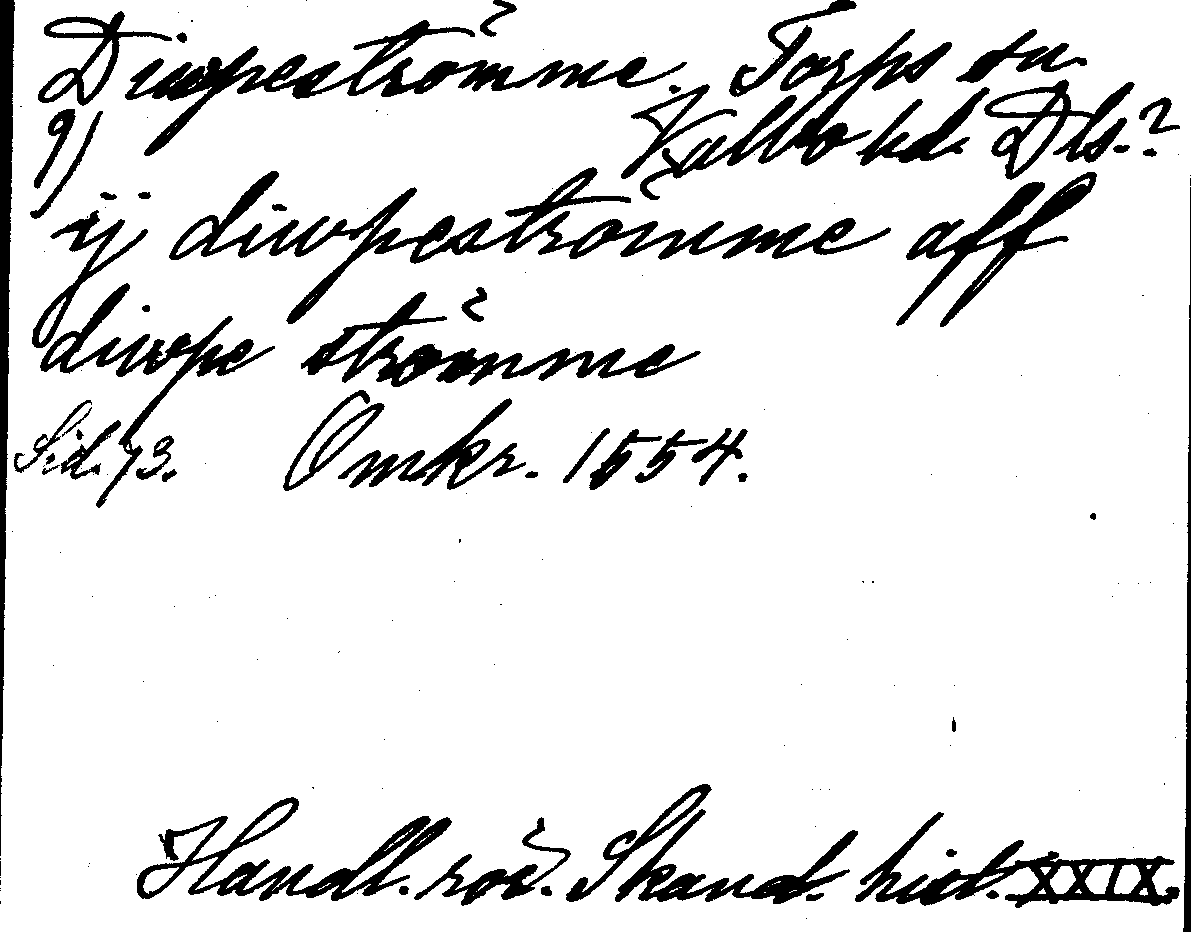 Diwpeströmme. Torps sn.
9) Valbo hd. Dls.?
ij diwpeströmme aff
diwpe strömme
Sid. 73. Omkr. 1554.
Handl. rör. Skand. hist. XXIX.